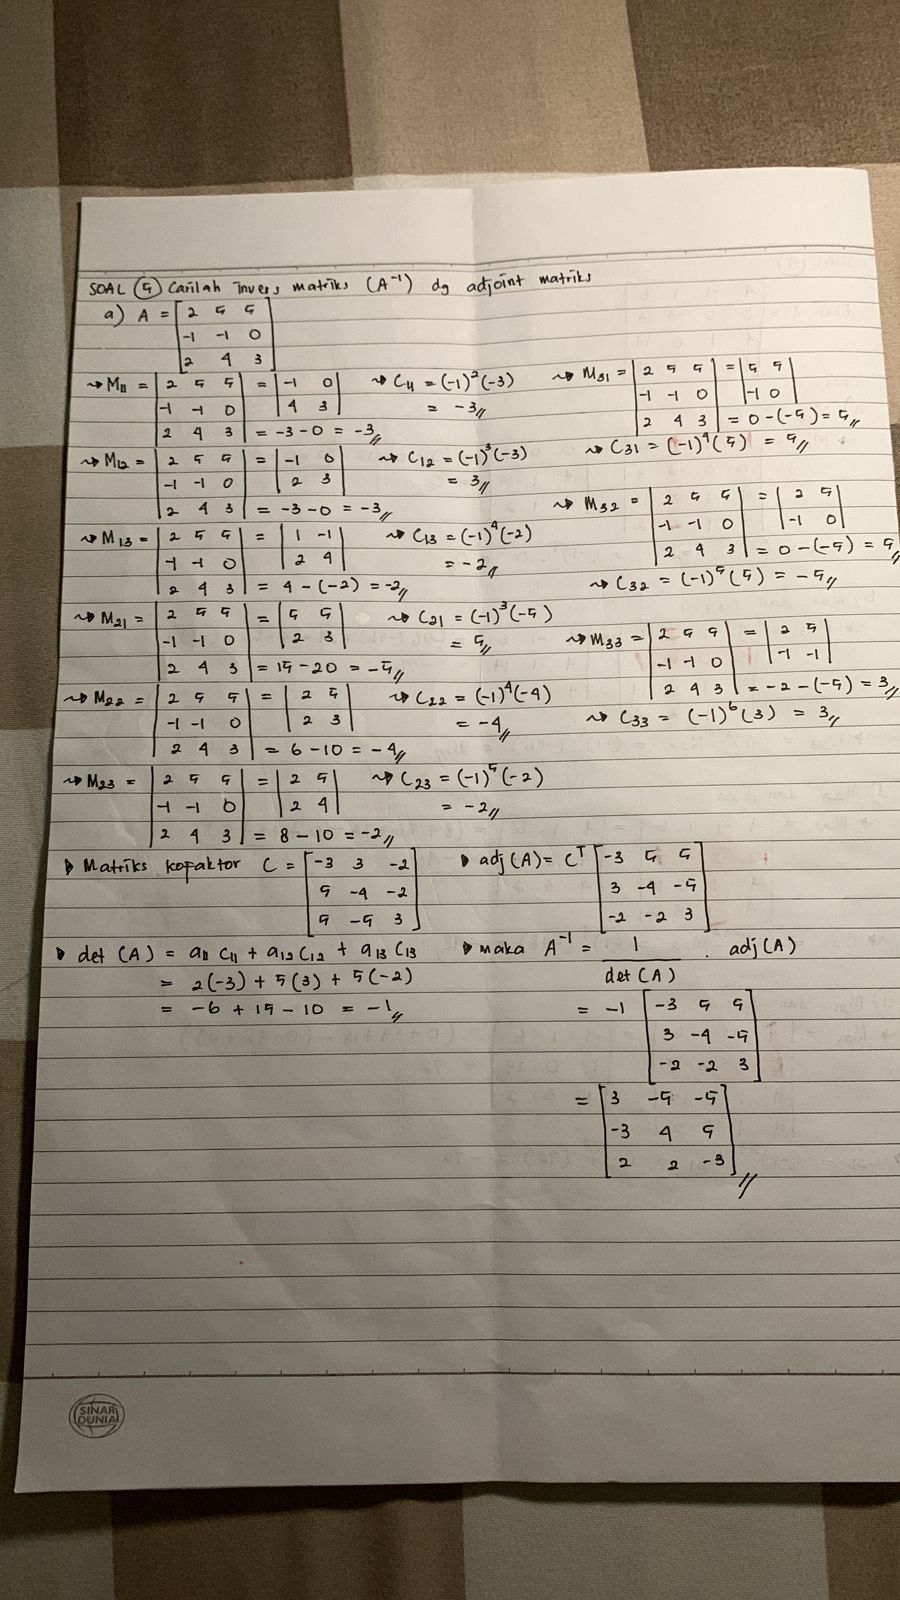 SOAL (5) Carilah invers matriks (A⁻¹) dg adjoint matriks
a) A = [2 5 5
-1 -1 0
2 4 3]
~> M11 = |2 5 5| = |-1 0|
|-1 -1 0| |4 3|
|2 4 3| = -3 - 0 = -3//
~> C11 = (-1)²(-3)
= -3//
~> M12 = |2 5 5| = |-1 0|
|-1 -1 0| |2 3|
|2 4 3| = -3 - 0 = -3//
~> C12 = (-1)³(-3)
= 3//
~> M13 = |2 5 5| = |1 -1|
|-1 -1 0| |2 4|
|2 4 3| = 4 - (-2) = -2//
~> C13 = (-1)⁴(-2)
= -2//
~> M21 = |2 5 5| = |5 5|
|-1 -1 0| |2 3|
|2 4 3| = 15 - 20 = -5//
~> C21 = (-1)³(-5)
= 5//
~> M22 = |2 5 5| = |2 5|
|-1 -1 0| |2 3|
|2 4 3| = 6 - 10 = -4//
~> C22 = (-1)⁴(-4)
= -4//
~> M23 = |2 5 5| = |2 5|
|-1 -1 0| |2 4|
|2 4 3| = 8 - 10 = -2//
~> C23 = (-1)⁵(-2)
= -2//
~> M31 = |2 5 5| = |5 5|
|-1 -1 0| |-1 0|
|2 4 3| = 0 - (-5) = 5//
~> C31 = (-1)⁴(5) = 5//
~> M32 = |2 5 5| = |2 5|
|-1 -1 0| |-1 0|
|2 4 3| = 0 - (-5) = 5//
~> C32 = (-1)⁵(5) = -5//
~> M33 = |2 5 5| = |2 5|
|-1 -1 0| |-1 -1|
|2 4 3| = -2 - (-5) = 3//
~> C33 = (-1)⁶(3) = 3//
Matriks kofaktor C = [-3 3 -2
5 -4 -2
5 -5 3]
adj(A) = Cᵀ [-3 5 5
3 -4 -5
-2 -2 3]
det (A) = a11 C11 + a12 C12 + a13 C13
= 2(-3) + 5(3) + 5(-2)
= -6 + 15 - 10 = -1//
maka A⁻¹ = 1 . adj(A)
det(A)
= -1 [-3 5 5
3 -4 -5
-2 -2 3]
= [3 -5 -5
-3 4 5
2 2 -3]//
SINAR
DUNIA